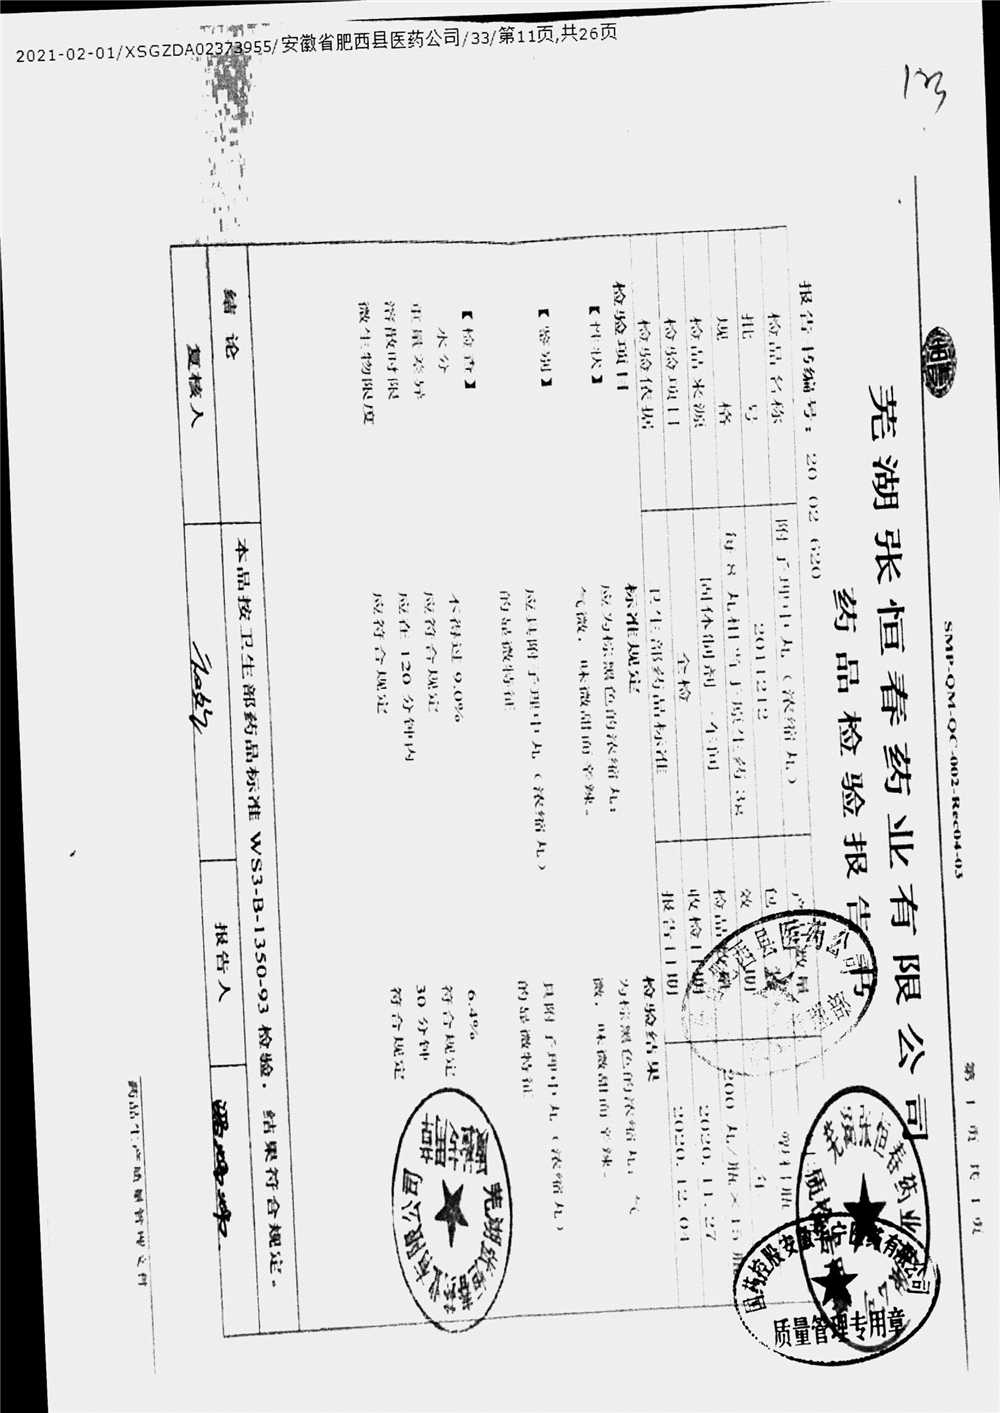 2021-02-01/XSGZDA02373955/安徽省肥西县医药公司/33/第11页,共26页
SMP-QM-QC-002-Rec04-03
第 1 页 共 1 页
芜湖张恒春药业有限公司
药品检验报告书
报告书编号: 20 02 620
检品名称 附子理中丸（浓缩丸）
批 号 2011212
规 格 每 8 丸相当于原生药 3g 包 塑料瓶
检品来源 固体制剂 车间 效 期 年
检验项目 全检 收检日期 2020.11.27
检验依据 卫生部药品标准 报告日期 2020.12.04
检验项目 标准规定 检验结果
【性状】 应为棕黑色的浓缩丸; 为棕黑色的浓缩丸; 气
气微, 味微甜而辛辣。 微, 味微甜而辛辣。
【鉴别】 应具附子理中丸（浓缩丸） 具附子理中丸（浓缩丸）
的显微特征 的显微特征
【检查】
水分 不得过 9.0% 6.4%
重量差异 应符合规定 符合规定
溶散时限 应在 120 分钟内 30 分钟
微生物限度 应符合规定 符合规定
结 论 本品按卫生部药品标准 WS3-B-1350-93 检验, 结果符合规定。
复核人 报告人
药品生产质量管理文件
芜湖张恒春药业有限公司
国药控股安徽 有限公司
质量管理专用章